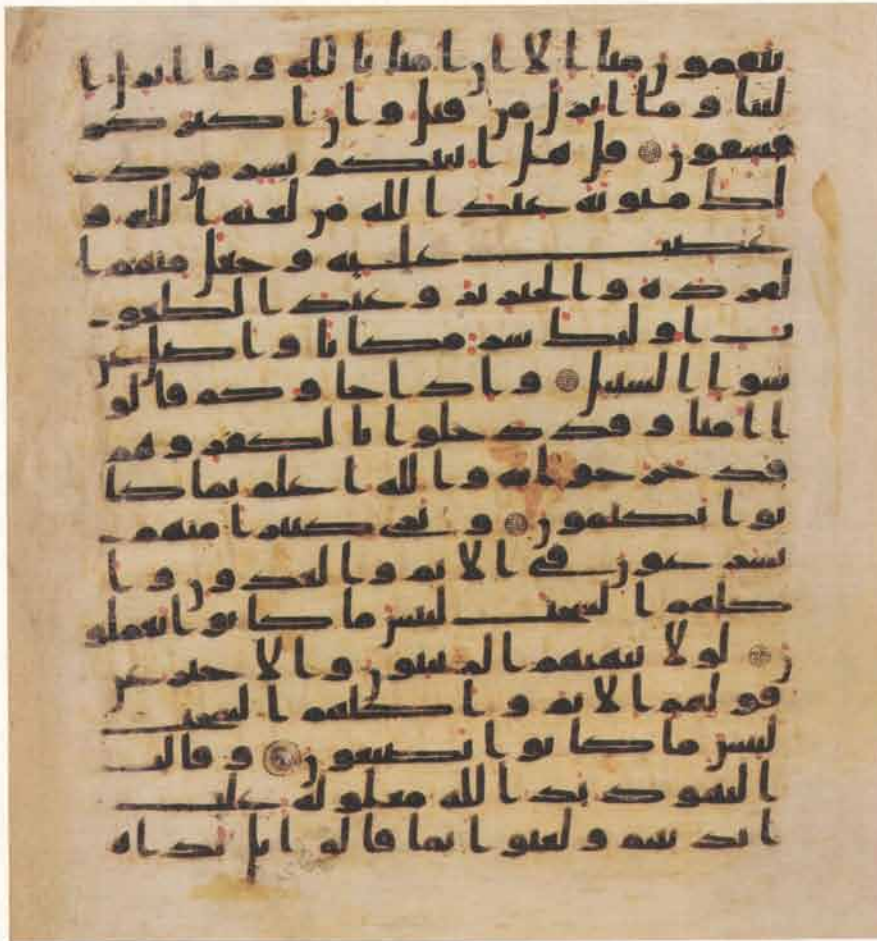 تنقمون منا الا ان امنا بالله وما انزل ا
لينا وما انزل من قبل وان اكثركم
فسقون قل هل انبئكم بشر من ذ
لك مثوبة عند الله من لعنه الله و
غضب عليه وجعل منهم ا
لقردة والخنزير وعبد الطغو
ت اولئك شر مكانا واضل عن
سوا السبيل واذا جاوكم قالو
ا امنا وقد دخلوا بالكفر وهم
قد خرجوا به والله اعلم بما كا
نوا يكتمون وترى كثيرا منهم
يسرعون في الاثم والعدون وا
كلهم السحت لبئس ما كانوا يعملو
ن لولا ينهيهم الربنيون والاحبر عن
قولهم الاثم واكلهم السحت
لبئس ما كانوا يصنعون وقالت
اليهود يد الله مغلولة غلت
ايديهم ولعنوا بما قالوا بل يداه